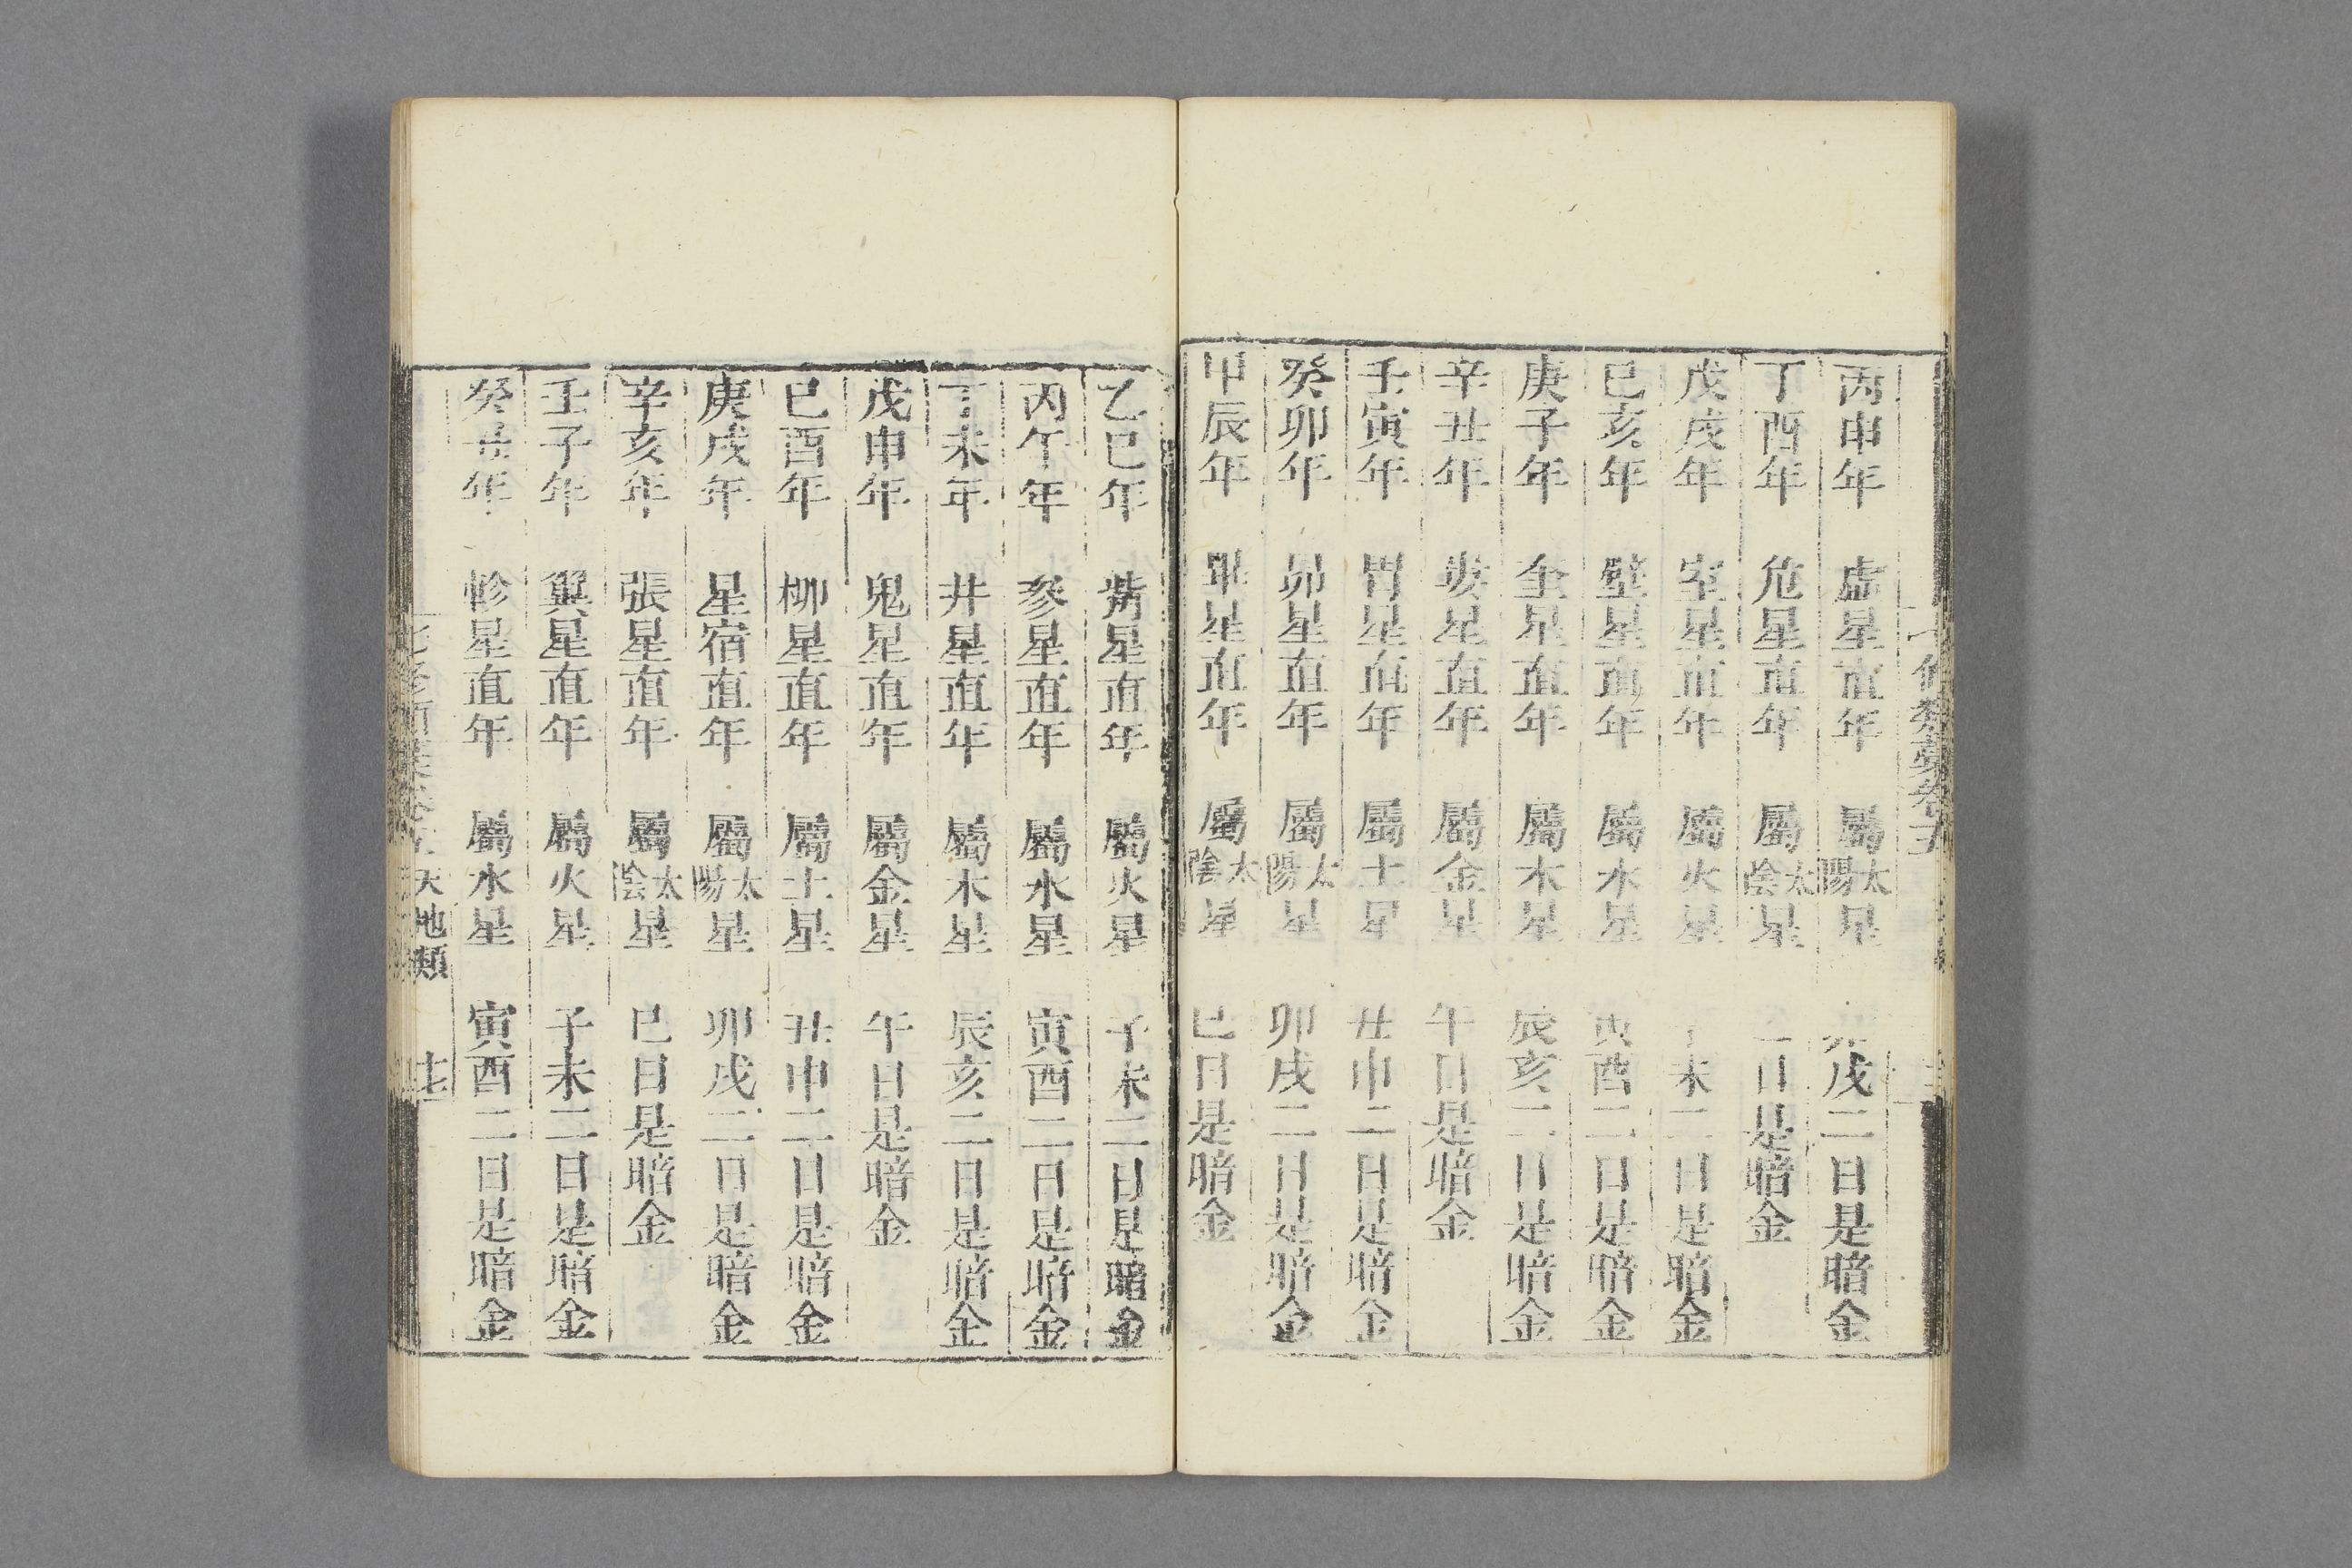 丙申年 虛星直年 屬太陽星 戌二日是暗金
丁酉年 危星直年 屬太陰星 日是暗金
戊戌年 室星直年 屬火星 未二日是暗金
巳亥年 壁星直年 屬水星 寅酉二日是暗金
庚子年 奎星直年 屬木星 辰亥二日是暗金
辛丑年 婁星直年 屬金星 午日是暗金
壬寅年 胃星直年 屬土星 丑申二日是暗金
癸卯年 昴星直年 屬太陽星 卯戌二日是暗金
甲辰年 畢星直年 屬太陰星 巳日是暗金
乙巳年 觜星直年 屬火星 子未二日是暗金
丙午年 參星直年 屬水星 寅酉二日是暗金
丁未年 井星直年 屬木星 辰亥二日是暗金
戊申年 鬼星直年 屬金星 午日是暗金
巳酉年 柳星直年 屬土星 丑申二日是暗金
庚戌年 星宿直年 屬太陽星 卯戌二日是暗金
辛亥年 張星直年 屬太陰星 巳日是暗金
壬子年 翼星直年 屬火星 子未二日是暗金
癸丑年 軫星直年 屬水星 寅酉二日是暗金
天地類